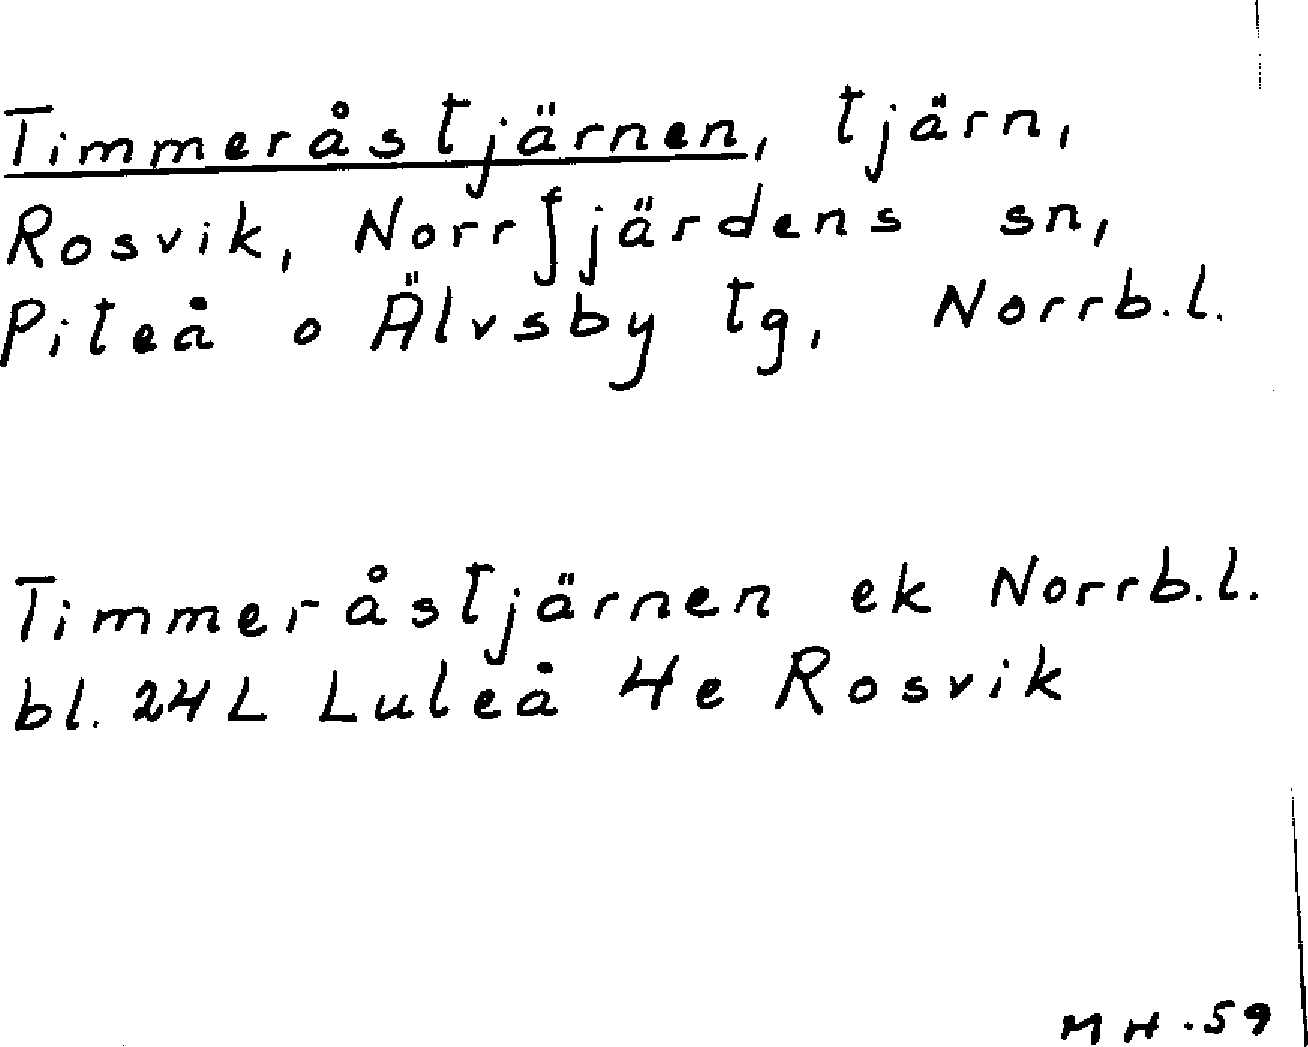 Timmeråstjärnen, tjärn,
Rosvik, Norrfjärdens sn,
Piteå o Älvsby tg, Norrb.l.
Timmeråstjärnen ek Norrb.l.
bl. 24L Luleå 4e Rosvik
MH.59